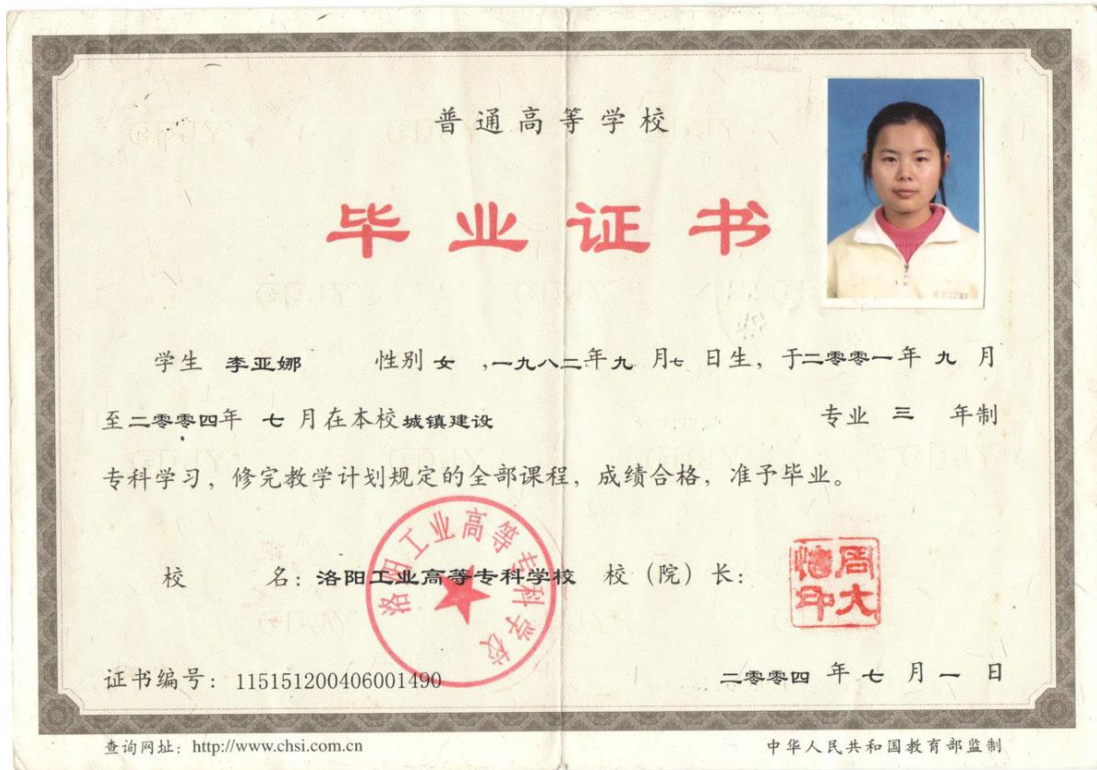 普通高等学校
毕业证书
学生 李亚娜 性别 女 ,一九八二年九 月七 日生，于二零零一年 九 月
至二零零四年 七 月在本校城镇建设 专业 三 年制
专科学习，修完教学计划规定的全部课程，成绩合格，准予毕业。
洛阳工业高等专科学校
校 名：洛阳工业高等专科学校 校（院）长：
证书编号：115151200406001490 二零零四 年 七 月 一 日
查询网址：http://www.chsi.com.cn 中华人民共和国教育部监制